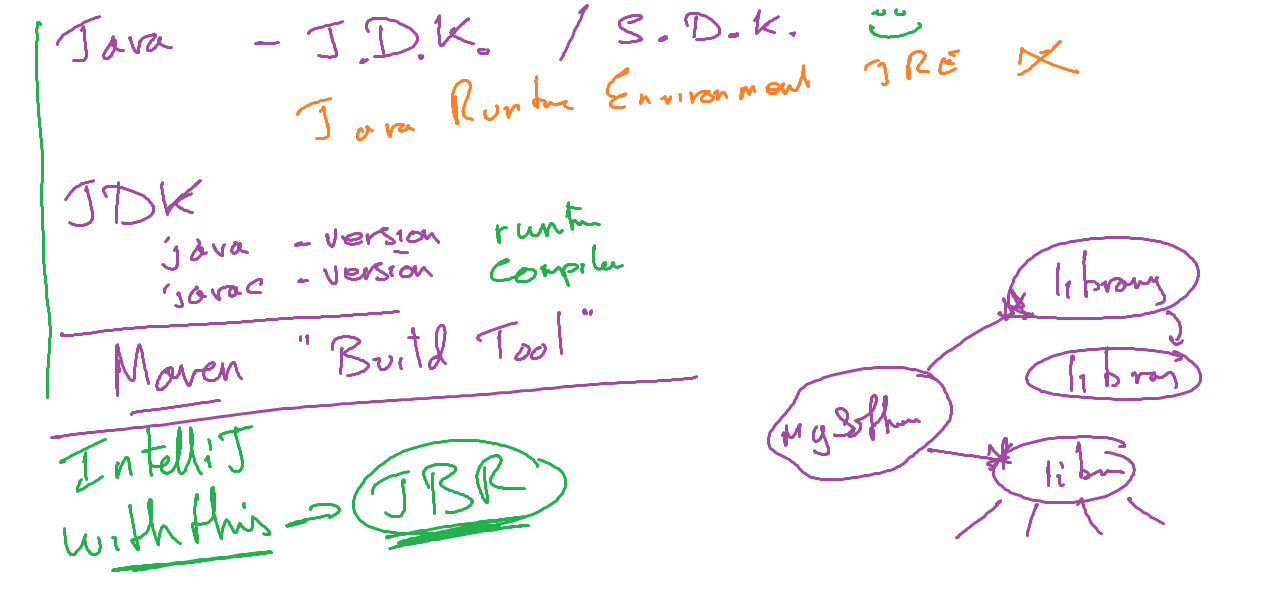 Java - J.D.K. / S.D.K.
Java Runtime Environment JRE
JDK
java - version runtime
javac - version compiler
Maven "Build Tool"
IntelliJ
with this → JBR
library
library
My Software
libr